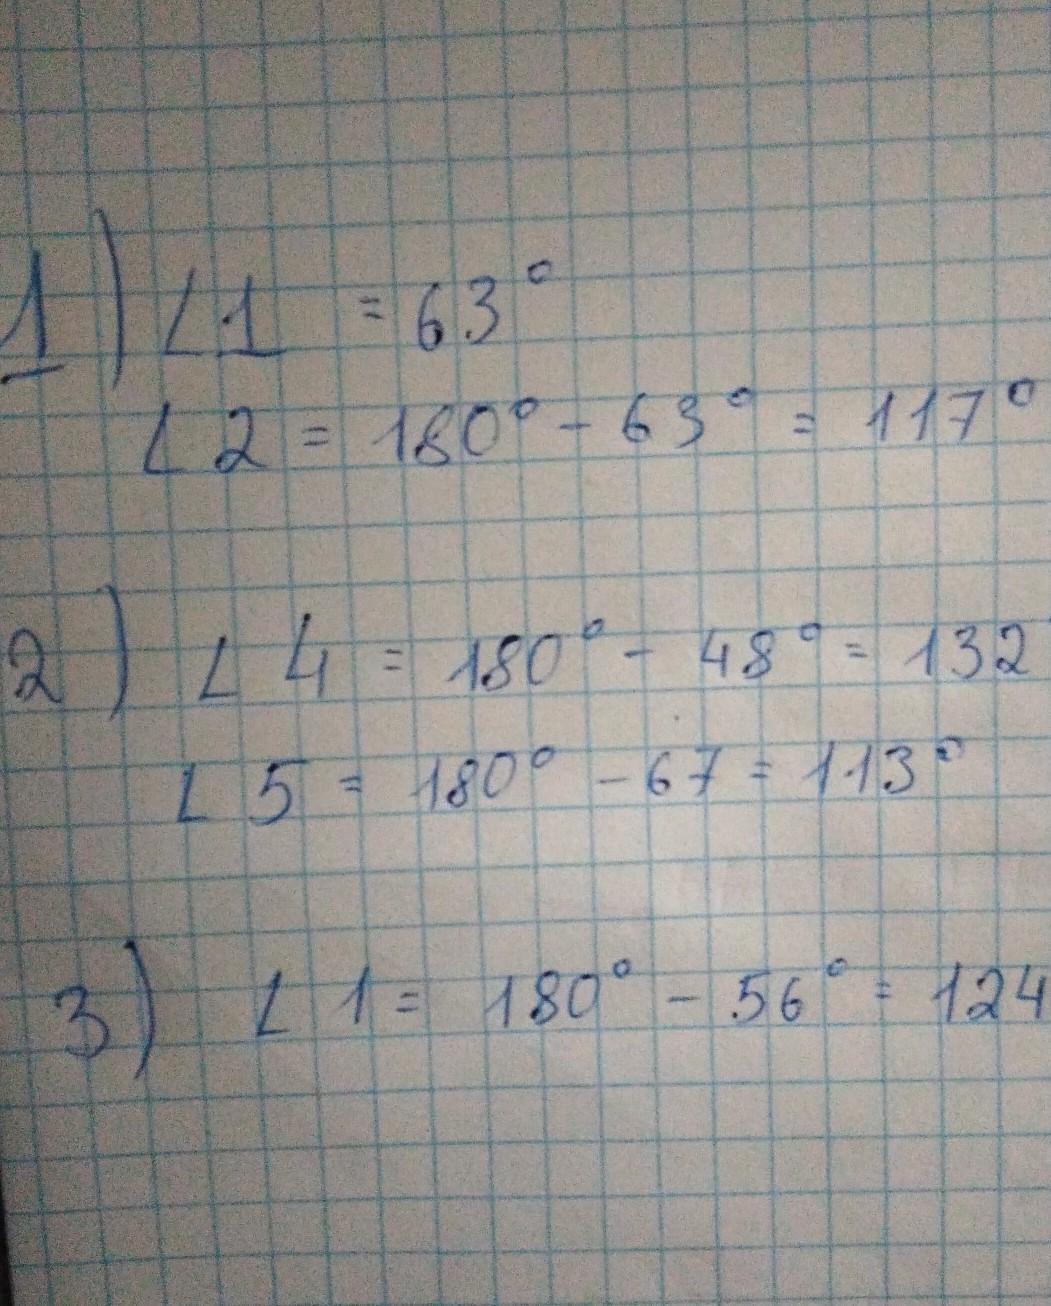 1) ∠1 = 63°
∠2 = 180° - 63° = 117°
2) ∠4 = 180° - 48° = 132°
∠5 = 180° - 67 = 113°
3) ∠1 = 180° - 56° = 124